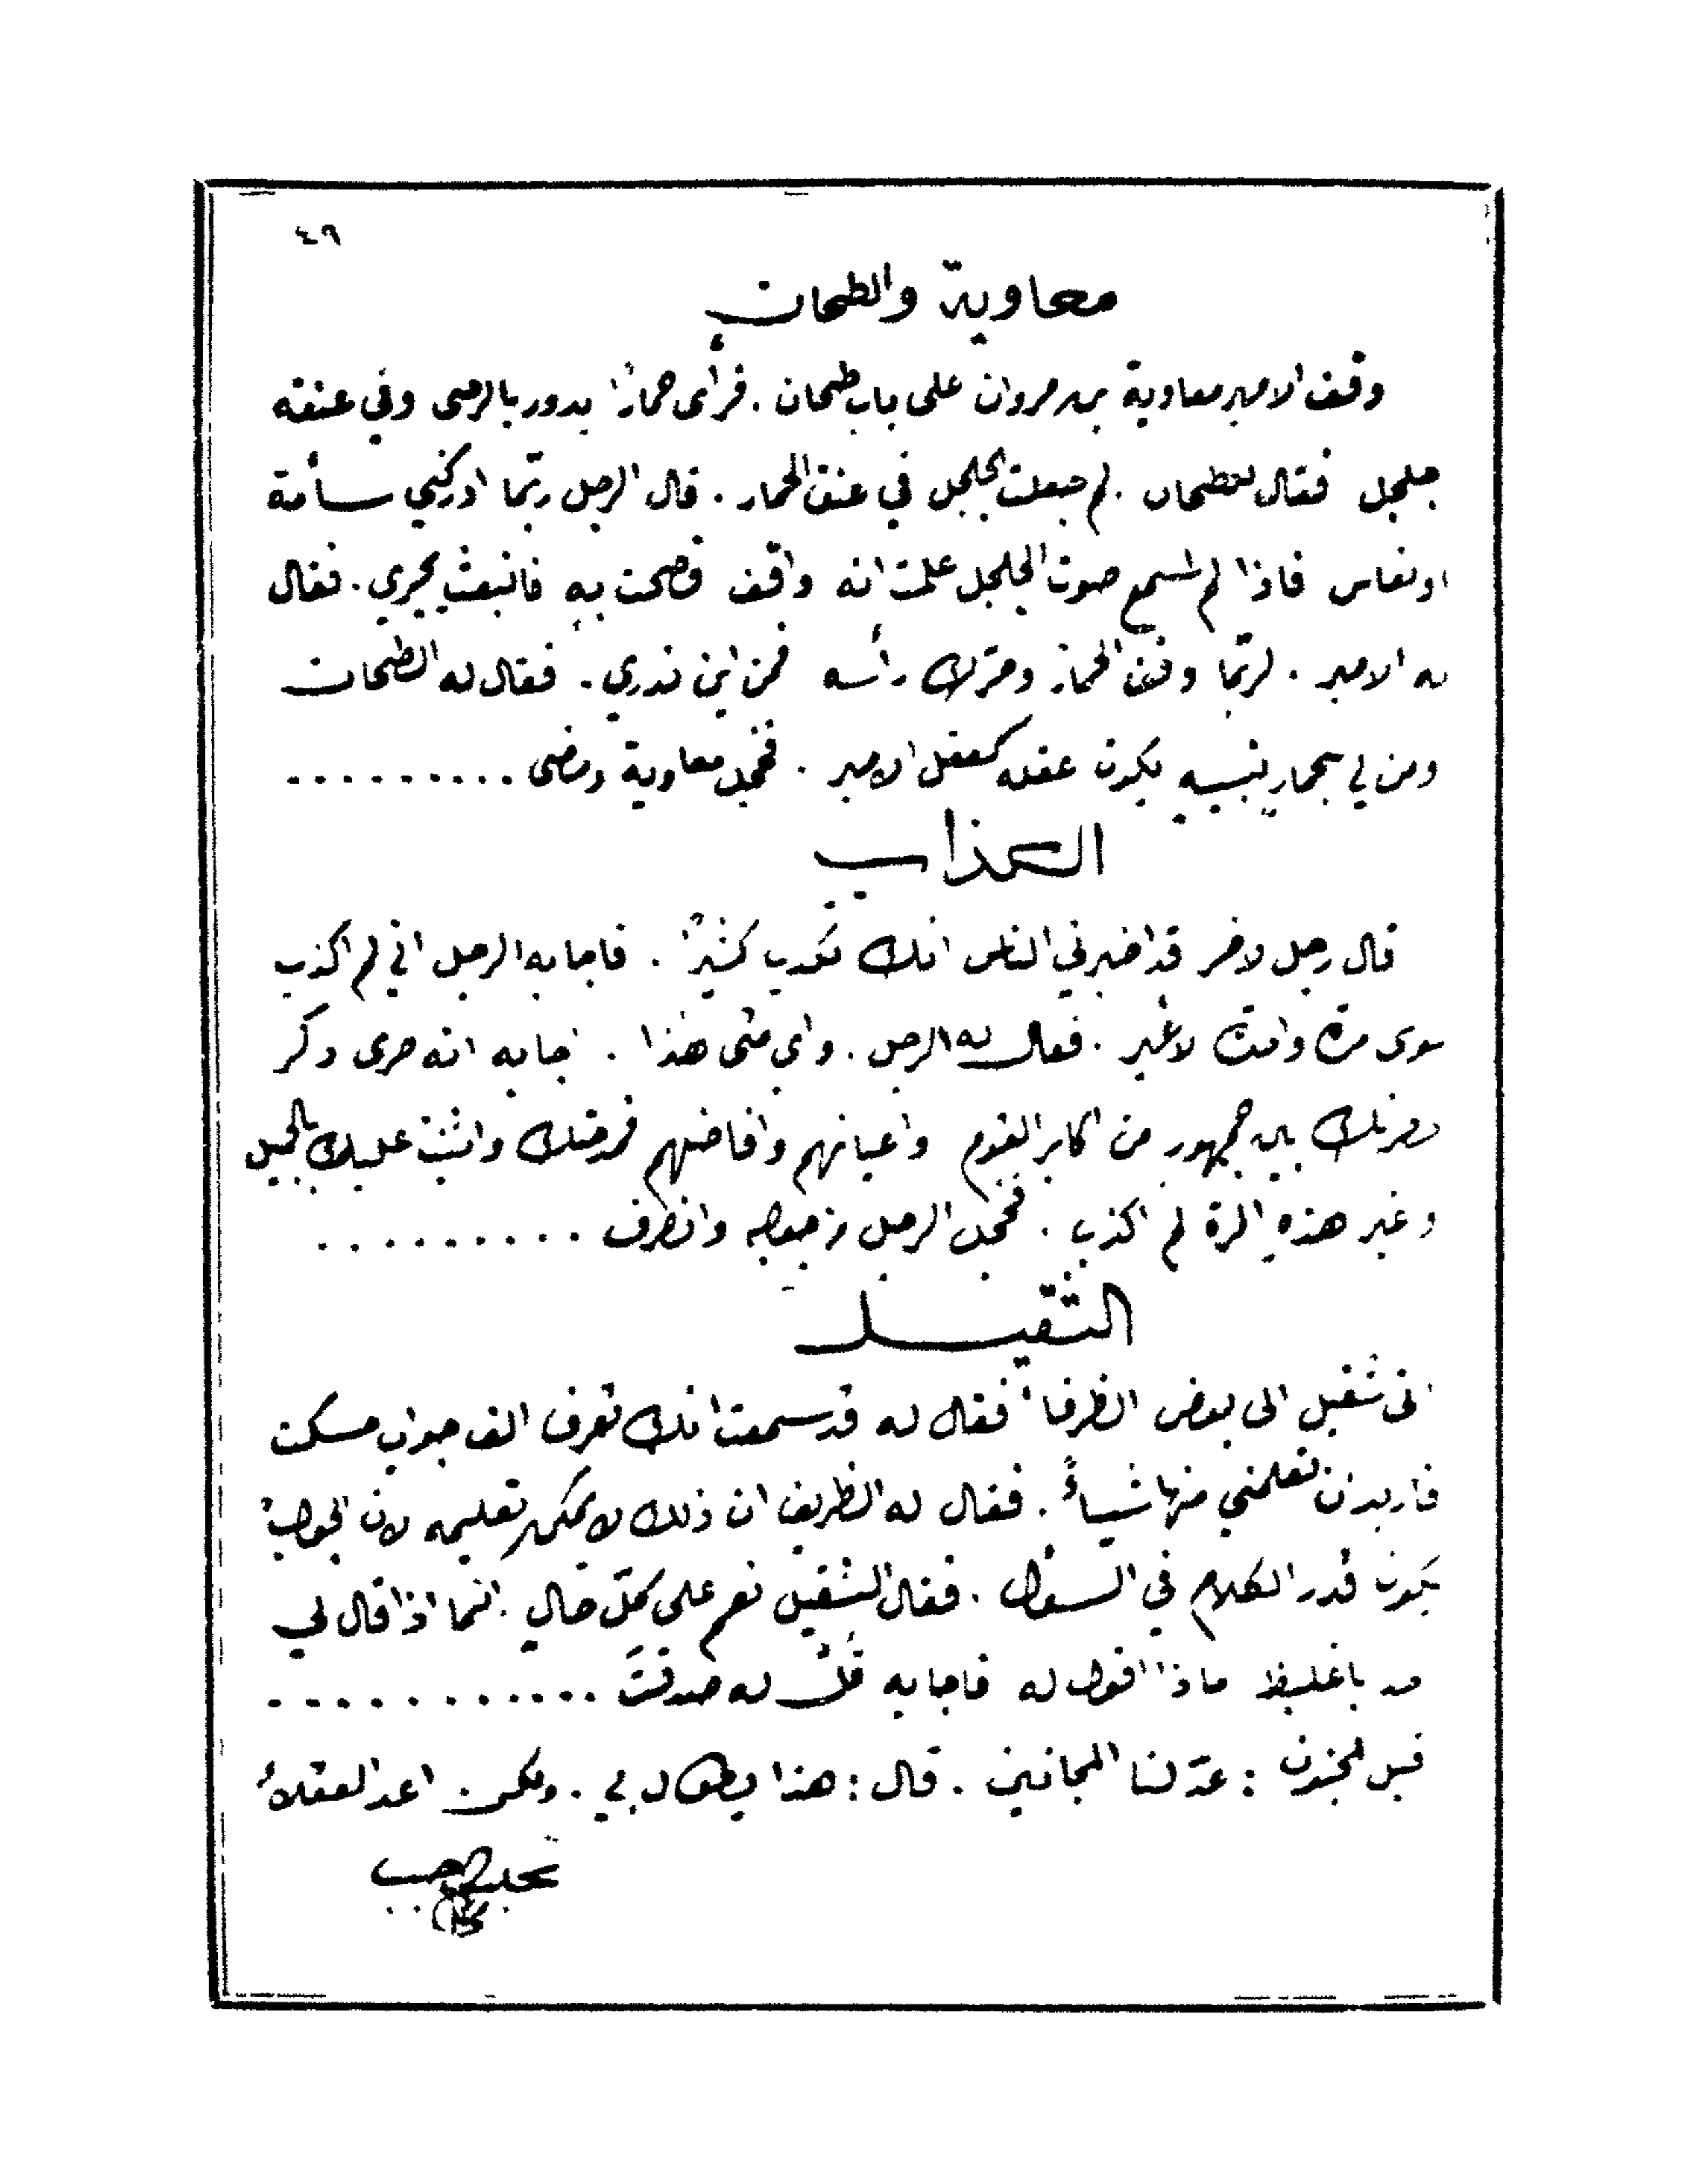 ٤٩
معاوية والطحان
وقف الامير معاوية بن مروان على باب طحان . فرأى حمارًا يدور بالرحى وفي عنقه
جلجل فقال للطحان . لم جعلت الجلجل في عنق الحمار . قال الرجل ربّما ادركني سأمة
او نعاس فاذا لم اسمع صوت الجلجل علمت انه واقف فصحت به فانبعث يجري . فقال
له الامير . لربّما وقف الحمار وحرّك رأسه فمن اين تدري . فقال له الطحان
ومن لي بحمار يكون عقله كعقل الامير . فخجل معاوية ومضى ..........
الكذاب
قال رجل لاخر قد اخبرني الناس انك تكذب كثيرًا . فاجابه الرجل اني لم اكذب
سوى مرة لا غير . فقال له الرجل . واي متى هذا . اجابه انه جرى ذكر
بين جمهور من اكابر القوم واعيانهم وافاضلهم فمدحتك واثنيت عليك بالجميل
وغير هذه المرة لم اكذب . فخجل الرجل من جوابه وانصرف .........
الثقيل
اتى ثقيل الى بعض الظرفاء فقال له قد سمعت انك تعرف الف جواب مسكت
فاريد ان تعلمني منها شيياءً . فقال له الظريف ان ذلك لا يمكن تعليمه لان الجواب
يكون قدر الكلام في السؤال . فقال الثقيل نعم على كلّ حالٍ . انما اذا قال لي
يا غليظ ماذا اقول له فاجابه قلْ له صدقتَ ............
قيل لمجنون : عدّ لنا المجانين . قال : هذا يطول بي . ولكن اعد العقلاءُ